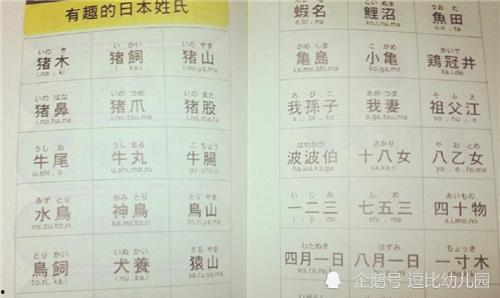 有趣的日本姓氏
いの き　い かい　いの やま
猪木　猪飼　猪山
i.no.ki　i.ka.i　i.no.ya.ma
いの はな　いの つめ　いの また
猪鼻　猪爪　猪股
i.no.ha.na　i.no.tsu.me　i.no.ma.ta
うし お　うし まる　ご ちょう
牛尾　牛丸　牛腸
u.shi.o　u.shi.ma.ru　go.cho.o
みず とり　かみ とり　とり やま
水鳥　神鳥　鳥山
mi.zu.to.ri　ka.mi.to.ri　to.ri.ya.ma
とり かい　いぬ かい　さる やま
鳥飼　犬養　猿山
to.ri.ka.i　i.nu.ka.i　sa.ru.ya.ma
うお た
蝦名　鯉沼　魚田
e.bi.na　ko.i.nu.ma　u.o.ta
かめ しま　こ がめ　かいで
亀島　小亀　鶏冠井
ka.me.shi.ma　ko.ga.me　ka.i.de
あ び こ　あ がつま　そ ふ え
我孫子　我妻　祖父江
a.bi.ko　a.ga.tsu.ma　so.hu.e
はわかが　さかり　や おとめ
波波伯　十八女　八乙女
ha.wa.ka.ga　sa.ka.ri　ya.o.to.me
い じ み　しめ　あいもの
一二三　七五三　四十物
i.ji.mi　shi.me　a.i.mo.no
わたぬき　ほずみ　ちょっき
四月一日　八月一日　一寸木
wa.ta.nu.ki
企鹅号 逗比幼儿园